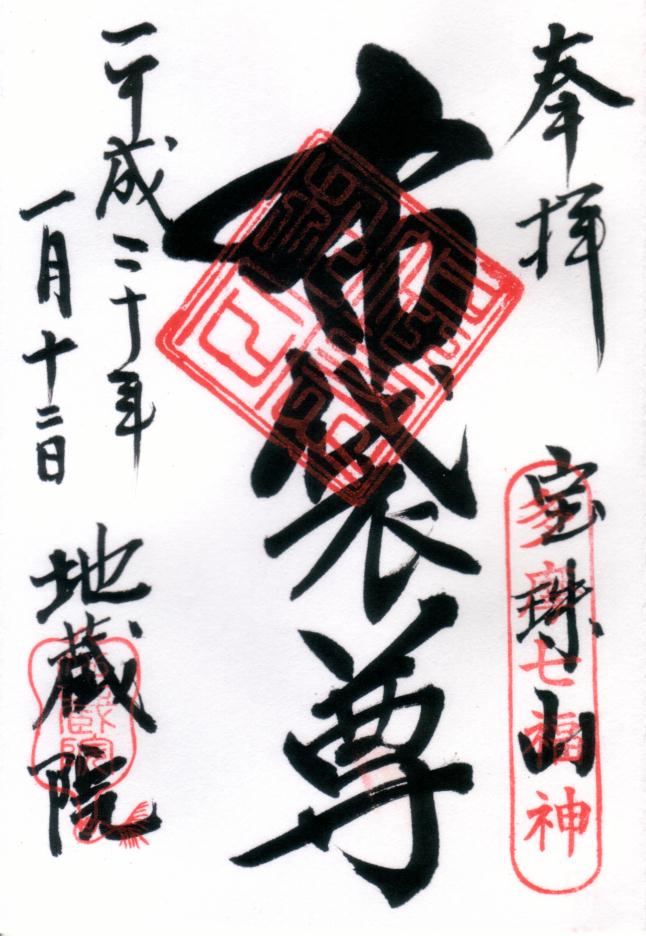 奉拝
宝珠山
多摩七福神
布袋尊
平成二十年
一月十二日
地蔵院